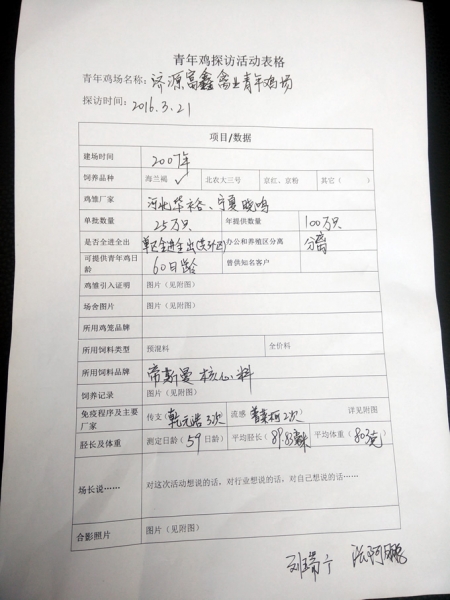 青年鸡探访活动表格
青年鸡场名称: 济源富鑫禽业青年鸡场
探访时间: 2016.3.21
项目/数据
建场时间 2007年
饲养品种 海兰褐 ✓ 北农大三号 京红、京粉 其它( )
鸡雏厂家 河北华裕、宁夏晓鸣
单批数量 25万只 年提供数量 100万只
是否全进全出 单区全进全出 办公和养殖区分离 分离
可提供青年鸡日龄 60日龄 曾供知名客户
鸡雏引入证明 图片(见附图)
场舍图片 图片(见附图)
所用鸡笼品牌
所用饲料类型 预混料 全价料
所用饲料品牌 帝斯曼 核心料
饲养记录 图片(见附图)
免疫程序及主要厂家 传支( 乾元浩 3次 流感 普莱柯 2次) 详见附图
胫长及体重 测定日龄(59日龄) 平均胫长( 平均体重(803克)
场长说…… 对这次活动想说的话,对行业想说的话,对自己想说的话……
合影照片 图片(见附图)
张阿鹏